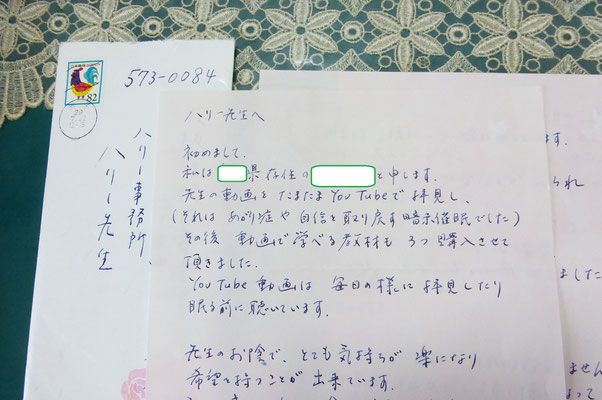 573-0084
82
ハリー事務所
ハリー先生
ハリー先生へ
初めまして、
私は 県在住の と申します。
先生の動画をたまたまYouTubeで拝見し、
(それは あがり症や 自信を取り戻す暗示催眠でした)
その後 動画で学べる教材も 3つ購入させて
頂きました。
YouTube動画は 毎日の様に拝見したり
眠る前に聴いています。
先生のお陰で、とても気持ちが 楽になり
希望を持つことが 出来ています。
ます。
られ
ました
ません